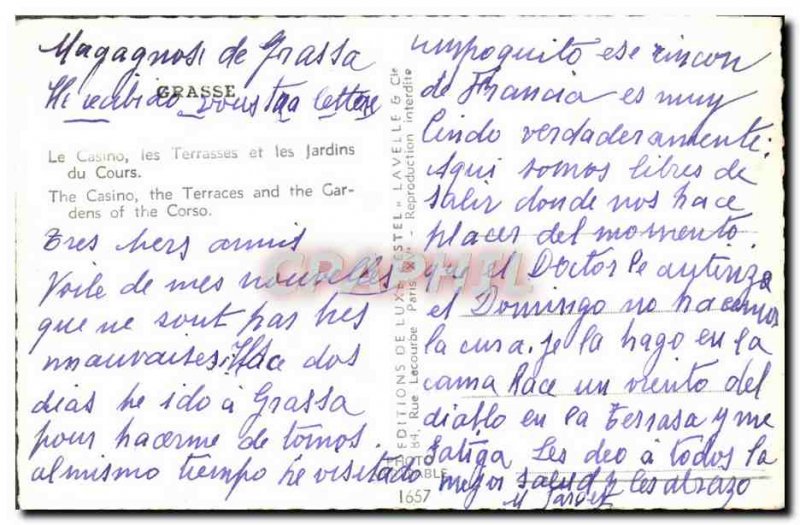 Magagnosi de Grassa
GRASSE
He recibido vous tra lettere
Le Casino, les Terrasses et les Jardins
du Cours.
The Casino, the Terraces and the Gar-
dens of the Corso.
Tres hers amis
Voile de mes nouvelles
que ne sont pas tres
mauvaises. Hace dos
dias he ido à Grassa
pour hacerme de tomos
al mismo tiempo he visitado
EDITIONS DE LUXE "ESTEL" LAVELLE & Cie
84, Rue Lacourbe Paris XVe - Reproduction interdite
PHOTO
VÉRITABLE
1657
umpoquito ese rincon
de Francia es muy
lindo verdaderamente.
Aqui somos libres de
salir donde nos hace
placer del momento
que el Doctor le autoriza
el Domingo no hacemos
la cura. je la hago en la
cama Race un viento del
diablo en la Terrasa y me
fatiga. Les deo à todos la
mejor salud y les abrazo
CPAPHIL